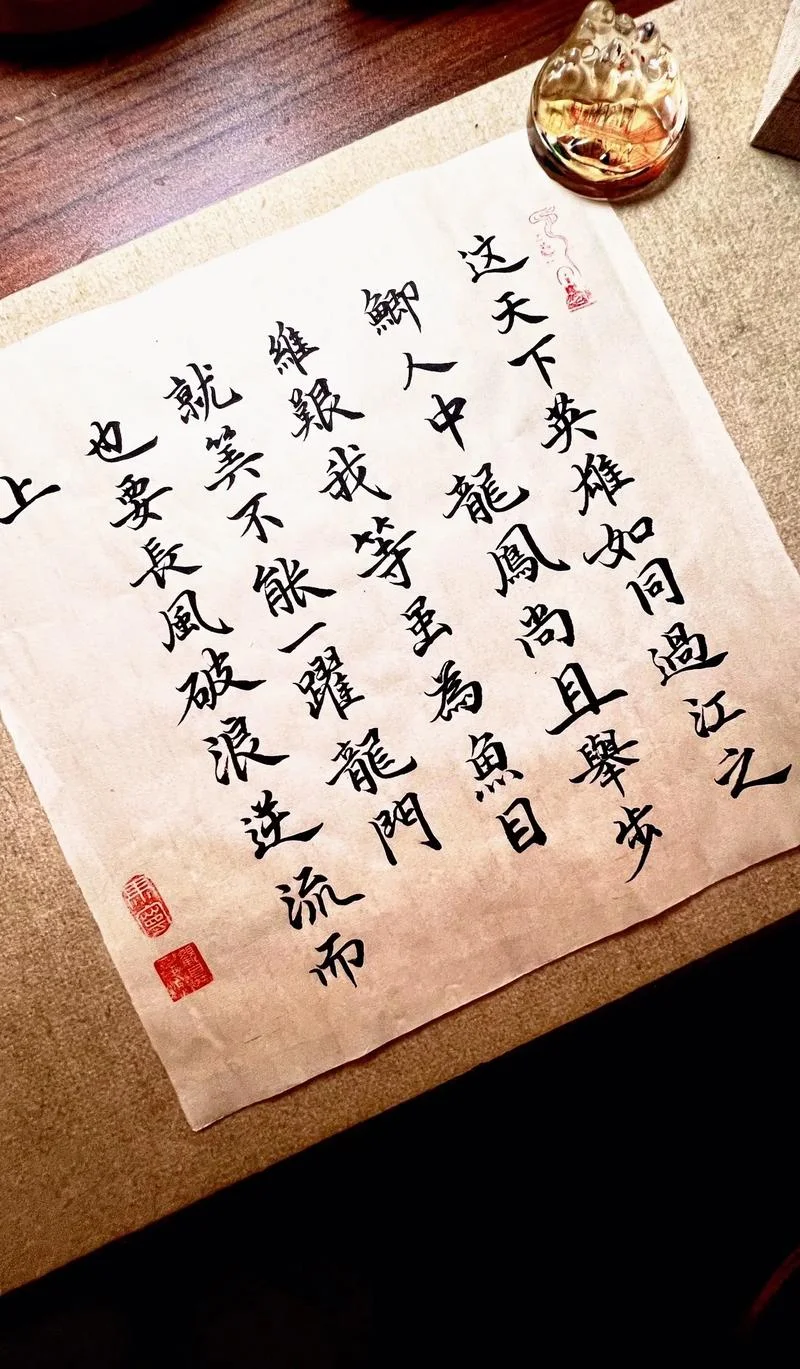 这天下英雄如同過江之
鯽人中龍鳳尚且舉步
維艱我等虽為魚目
就算不能一躍龍門
也要長風破浪逆流而
上